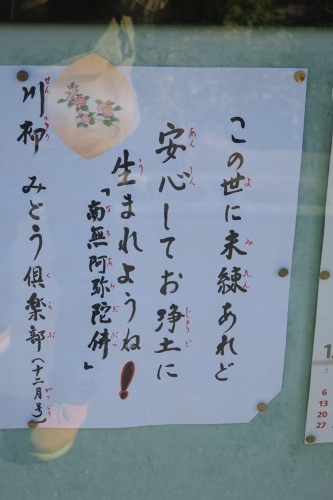 この世に未練あれど
安心してお浄土に
生まれようね！
「南無阿弥陀佛」
川柳 みどう倶楽部（十二月号）
6
13
20
27